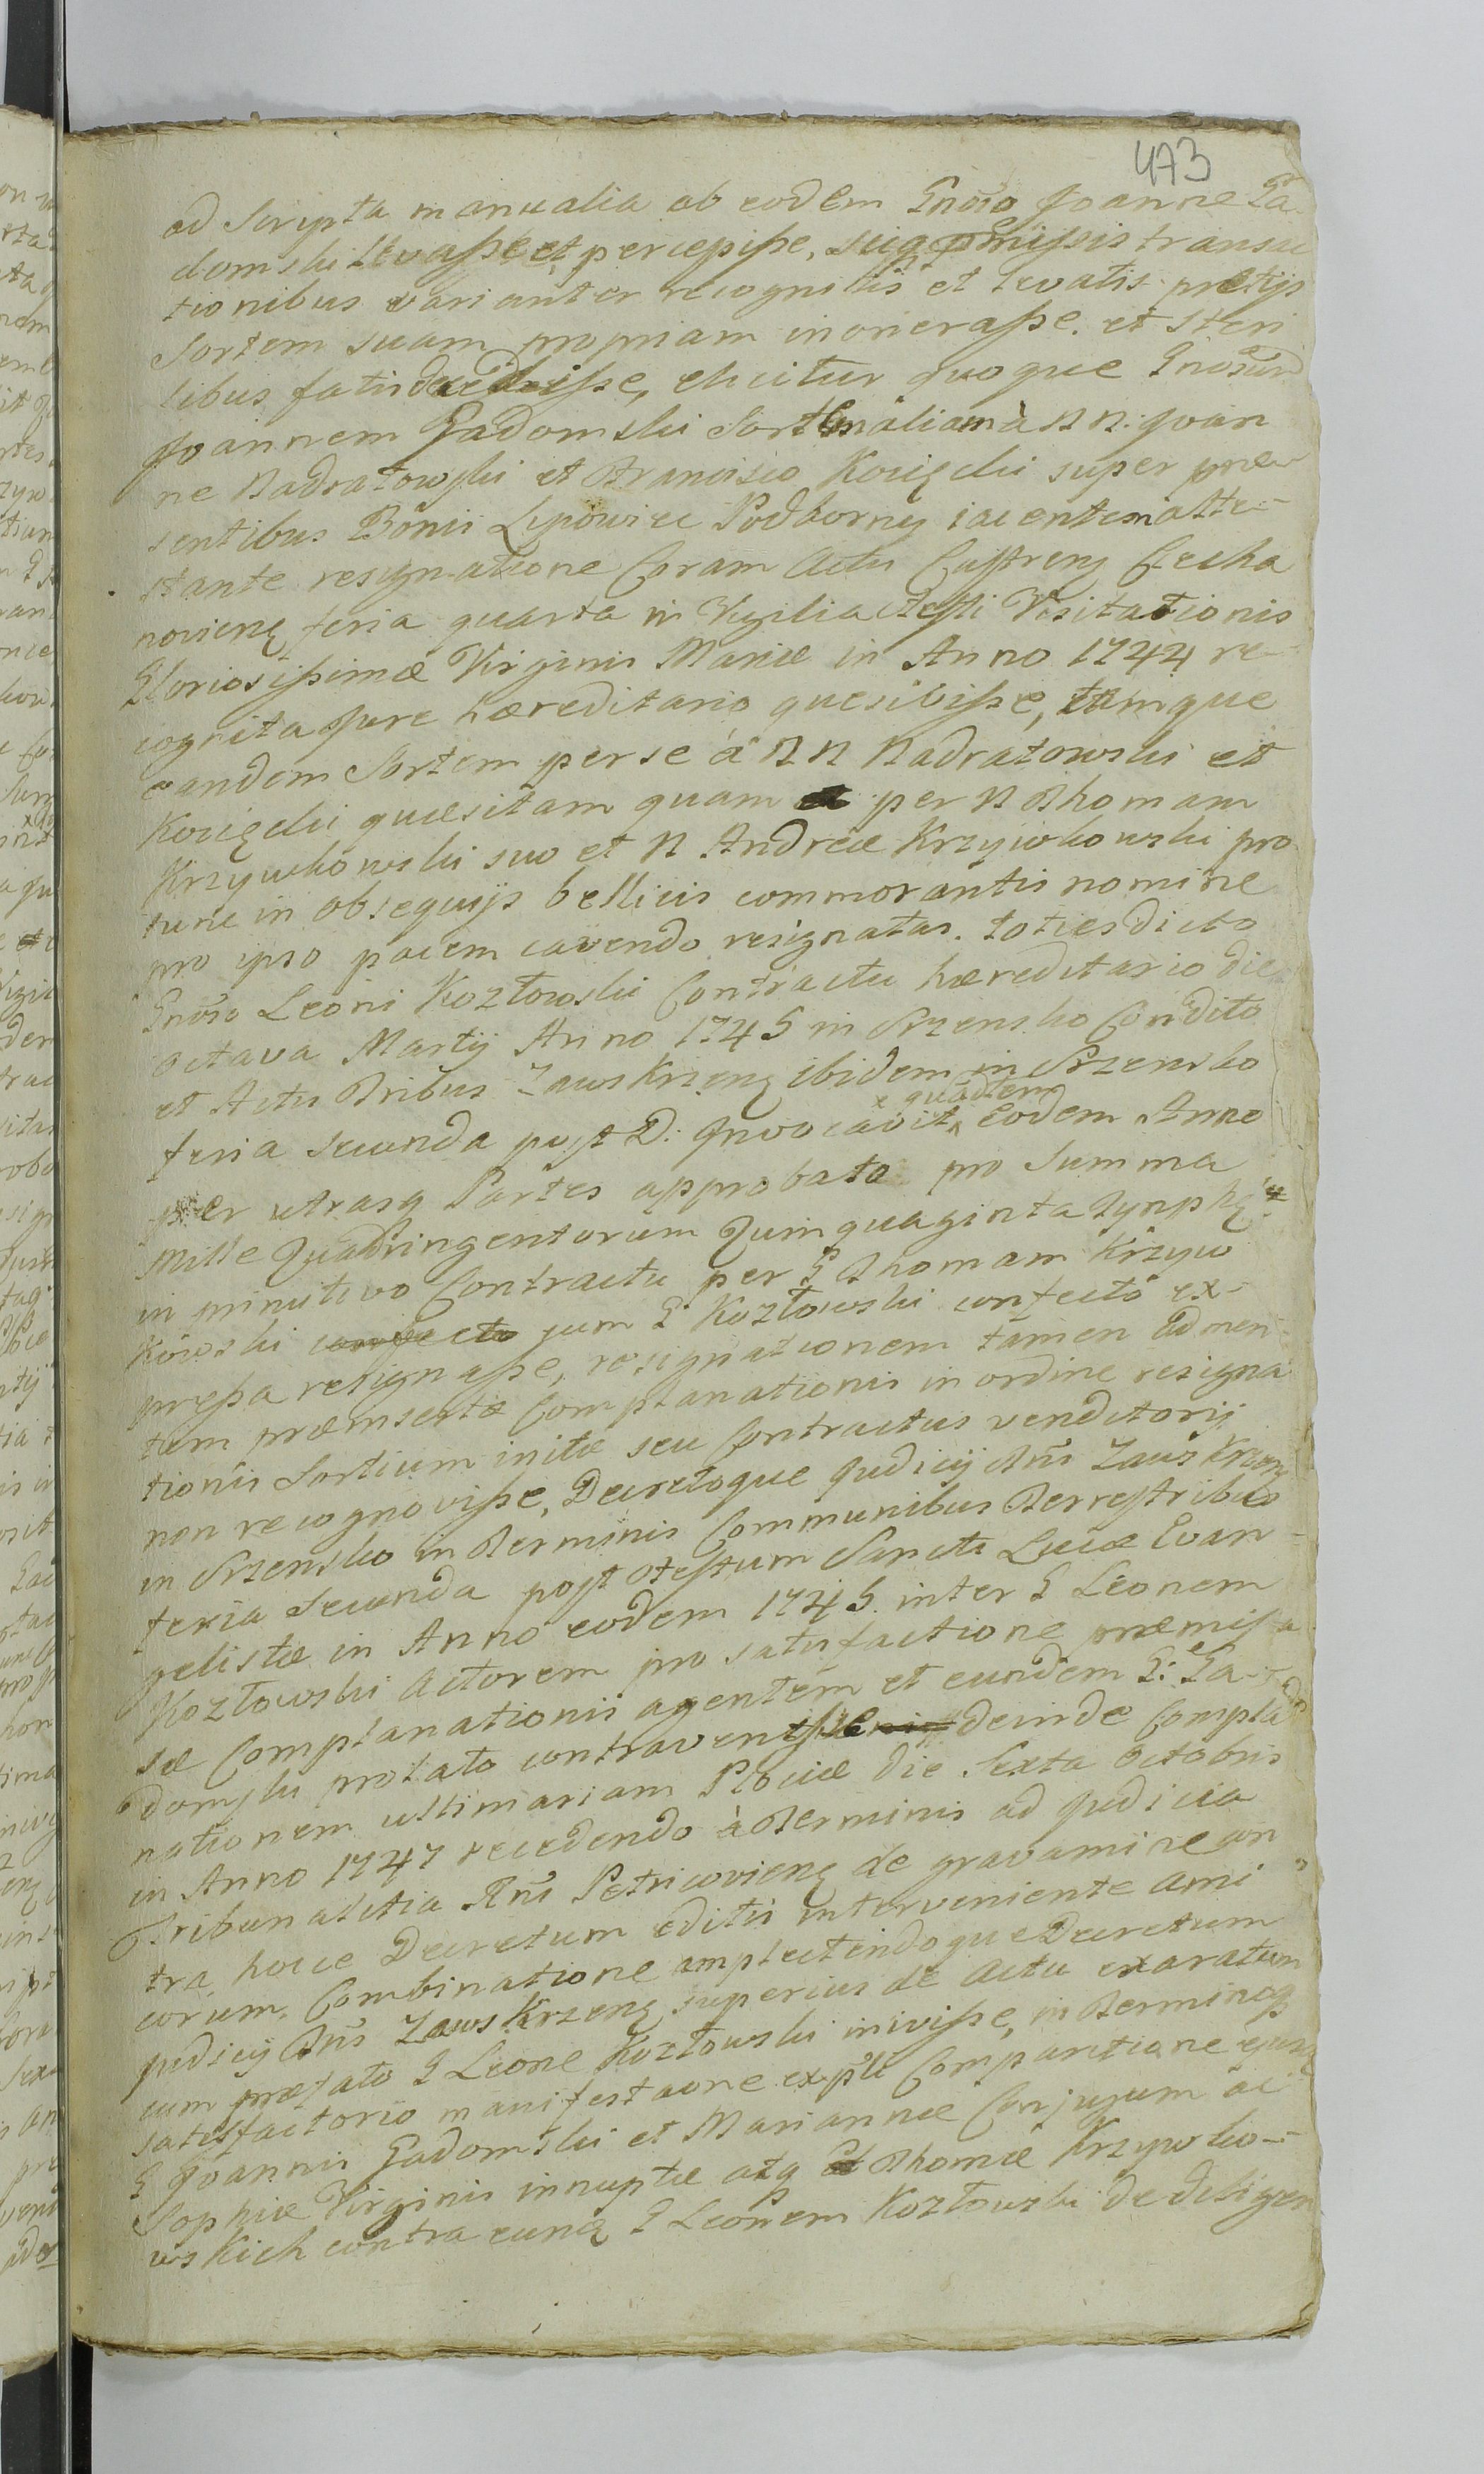 473
ad Scripta manualia ab eodem Gnoso Joanne Ga
domski levasse et percepisse, siiq pmissis transa
tionibus varianter recognitis et levatis pretijs
Sortem suam propriam inonerasse. et steri
libus fatis dedisse, elicitur quoque Gnosum
Joannem Gadomski Sortem aliam à NN: Joan
ne Nadratowski et Francisco Kocięcki super præ
sentibus Bonis Lipowiec Podborny iacentem atte-
stante resignatione Coram Actu Castrens Ciecha
noviens feria quarta in Vigilia Festi Visitationis
Gloriosissimæ Virginis Mariæ in Anno 1744 re-
cognita Jure hæreditario quesibisse, tamque
eandem Sortem per se à NN Nadratowski et
Kocięcki quæsitam quam per N Thomam
Krzywkowski suo et N Andreæ Krzywkowski pro
tunc in obsequijs bellicis commorantis nomine
pro ipso pacem cavendo resignatas. toties dicto
Gnoso Leoni Kozłowski Contractu hæreditario die
octava Martij Anno 1745 in Szrensko Condito
et Actu Tribus Zawskrzens ibidem in Szrensko
x quadem
feria secunda post D: Invocavit x Eodem Anno
per utrasq Partes approbato pro Summa
Mille Quadringentorum Quinquaginta Tynph
in minutivo Contractu per G Thomam Krzyw
kowski confecto cum G Kozłowski confecto ex-
pressa resignasse, resignationem tamen ad men
tem præinsertæ Complanationis in ordine resigna
tionis Sortium initæ seu Contractus venditorij
non recognovisse, Decretoque Judicij Tris Zawskrzens
in Szrensko in Terminis Communibus Terrestribus
feria Secunda post Festum Sancti Lucæ Evan-
gelistæ in Anno eodem 1745. inter G Leonem
Kozłowski Actorem pro satisfactione præmis
sæ Complanationis agentem et eundem G: Ga-
domski prolato contravenisse deinde Compla
nationem ultimariam Plociæ die Sexta Octobris
in Anno 1747 recedendo à Terminis ad Judicia
Tribunalitia Rni Petricoviens de gravamine con
tra hocce Decretum editis interveniente ami
corum Combinatione amplectendoque Decretum
Judicij Tris Zawskrzens superius de Actu exaratum
cum prætato G Leone Kozłowski inivisse, in Terminoq
satisfactorio manifestaone expti Comparitione ejusq
G Joannis Gadomski et Mariannæ Conjugum ac
Sophiæ Virginis innuptæ atq Thomæ Krzywko-
wskich contra eunq G Leonem Kozłowski de diligen